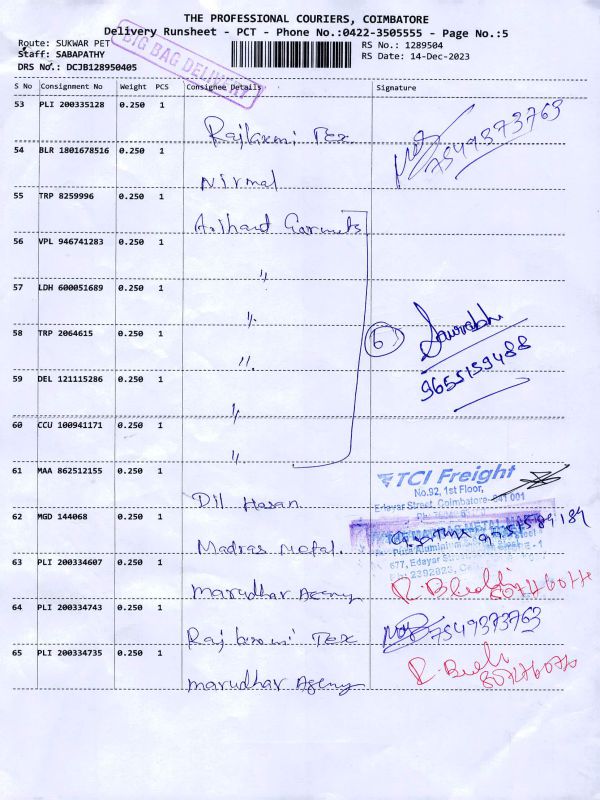 THE PROFESSIONAL COURIERS, COIMBATORE
Delivery Runsheet - PCT - Phone No.:0422-3505555 - Page No.:5
Route: SUKWAR PET
RS No.: 1289504
Staff: SABAPATHY
RS Date: 14-Dec-2023
DRS No.: DCJB128950405
BIG BAG DELIVERY
S No Consignment No Weight PCS Consignee Details Signature
53 PLI 200335128 0.250 1 Rajlaxmi Tex 7549373763
54 BLR 1801678516 0.250 1 Nirmal
55 TRP 8259996 0.250 1 Arihand Garments
56 VPL 946741283 0.250 1 "
57 LDH 600051689 0.250 1 "
58 TRP 2064615 0.250 1 " 6 Saurabh
9655159488
59 DEL 121115286 0.250 1 "
60 CCU 100941171 0.250 1 "
61 MAA 862512155 0.250 1 Dil Hasan
TCI Freight
No.92, 1st Floor,
Edayar Street, Coimbatore-641 001
62 MGD 144068 0.250 1 Madras Metal.
677, Edayar
63 PLI 200334607 0.250 1 Marudhar Agency
64 PLI 200334743 0.250 1 Raj laxmi Tex 7549373763
65 PLI 200334735 0.250 1 Marudhar Agency